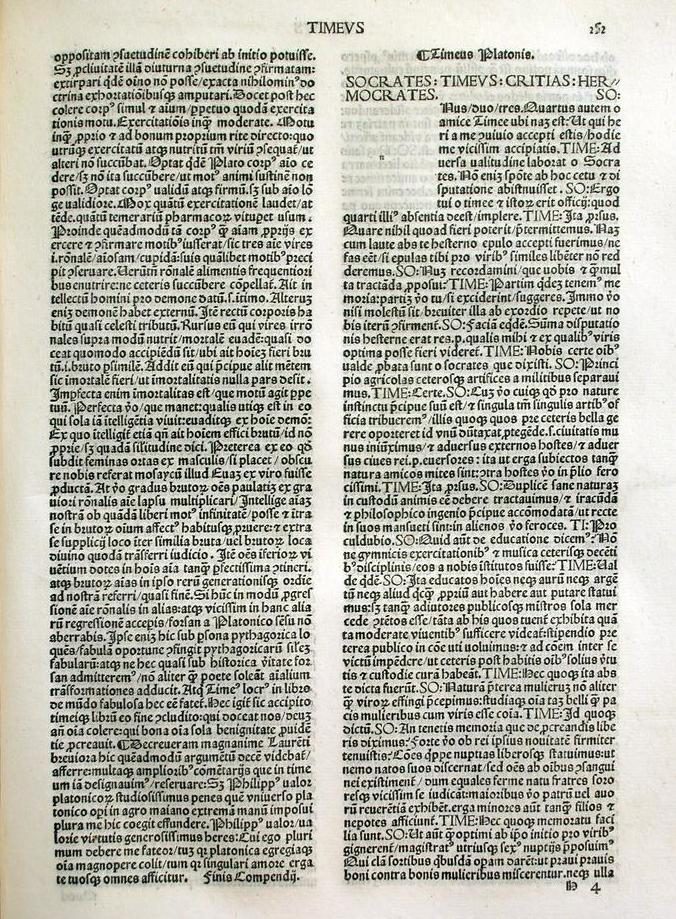 TIMEVS
252
oppositam ꝯsuetudinē cohiberi ab initio potuisse.
Sȝ ꝓcliuitatē illā diuturna ꝯsuetudine ꝯfirmatam:
extirpari qdē oīno nō posse/exacta nihilominꝰ do
ctrina exhortatiōibusqꝫ amputari. Docet post hec
colere corpꝰ simul & aīum/ꝑpetuo quodā exercita
tionis motu. Exercitatiōis inqꝫ moderate. Motu
inqꝫ ꝓprio & ad bonum proprium rite directo: quo
utrūqꝫ exercitatū atqꝫ nutritū tm̄ viriū ꝯsequat̄/ut
alteri nō succūbat. Optat qdē Plato corpꝰ aīo ce
dere/sȝ nō ita succūbere/ut motꝰ animi sustinē non
possit. Optat corpꝰ ualidū atqꝫ firmū. sȝ sub aīo lō
ge ualidiore. Mox quātū exercitationē laudet/at
tēde. quātū temerariū pharmacoꝝ vitupet usum.
Proinde quēadmodū tā corpꝰ ꝙ̄ aīam ꝓprijs ex
ercere & ꝯfirmare motibꝰ iusserat/sic tres aīe vires
i. rōnalē/aīosam/cupidā: suis quālibet motibꝰ preci
pit ꝯseruare. Uerūtn̄ rōnalē alimentis frequentiori
bus enutrire: ne ceteris succūbere cōpellat̄. Ait in
tellectū homini pro demone datū. s. itimo. Alteruȝ
enīȝ demonē habet externū. Itē rectū corporis ha
bitū quasi celesti tributū. Rursus eū qui vires irrō
nales supra modū nutrit/mortalē euadē: quasi do
ceat quomodo accipiēdū sit/ubi ait hoīeȝ fieri bru
tū. i. bruto ꝑsimilē. Addit eū qui p̄cipue alit mētem
sic imortalē fieri/ut imortalitatis nulla pars desit.
Impfecta enim imortalitas est/que motū agit ꝑpe
tuū. Perfecta v̊o/que manet: qualis utiqꝫ est in eo
qui sola iā itelligētia viuit: euaditqꝫ ex hoīe demō:
Ex quo itelligit̄ etiā qn̄ ait hoīem effici brutū/id nō
ꝓprie/sȝ quadā silitudine dici. Preterea ex eo qd̄
subdit feminas ortas ex masculis/si placet/obscu
re nobis referat mosaycū illud Euaȝ ex viro fuisse
ꝓductā. At v̊o gradus brutoꝝ oēs paulatiȝ ex gra
uiori rōnalis aīe lapsu multiplicari/Intellige aīaȝ
nostrā ob quādā liberi motꝰ infinitatē/posse & itra
se in brutoꝝ oīum affectꝰ habitusqꝫ ꝓruere: & extra
se supplicij loco iter similia bruta/uel brutoꝝ loca
diuino quodā trāsferri iudicio. Itē oēs iferioꝝ vi
uētium dotes in hoīs aīa tanqꝫ ꝑfectissima ꝯtineri.
atqꝫ brutoꝝ aīas in ipso rerū generationisqꝫ ordīe
ad nostrā referri/quasi finē. Si hūc in modū ꝓgres
sionē aīe rōnalis in alias: atqꝫ vicissim in hanc alia
rū regressionē accepis/forsan a Platonico sēsu nō
aberrabis. Ipse enīȝ hic sub ꝑsona pythagorica lo
quēs/fabulā oportune ꝯfingit pythagoricarū silēȝ
fabularū: atqꝫ ne hec quasi sub historica v̄itate for
san admitterem̄/no aliter ꝙ̄ poete solēat aīalium
trāsformationes adducit. Atqꝫ Timeꝰ locrꝰ in libro
de mūdo fabulosa hec eē fatet̄. Hec igit̄ sic accipito
timeiqꝫ librū eo fine ꝯcludito: qui doceat nos/deuȝ
an oīa colere: qui bona oīa sola benignitate ꝓuidē
tie ꝓcreauit. ¶Decreueram magnanime Laurēti
breuiora hic quēadmodū argumētū decē videbat̄/
afferre: multaqꝫ ampliorib' comētarijs que in time
um iā designauimꝰ/reseruare: Sȝ Philippꝰ ualoꝝ
platonicoꝝ studiosissimus penes quē vniuerso pla
tonico opi in agro maiano extremā manū imposui
plura me hic coegit effundere. Philippꝰ ualoꝝ ua
lorie virtutis generosissimus heres: Cui ego pluri
mum debere me fateor/tuȝ qꝛ platonica egregiaqꝫ
oīa magnopere colit/tum qꝛ singulari amore erga
te tuosqꝫ omnes afficitur. Finis Compendij.
¶Timeus Platonis.
SOCRATES: TIMEVS: CRITIAS: HER//
MOCRATES. SO:
Nus/duo/tres. Quartus autem o
amice Timee ubi naȝ est: Ut qui he
ri a me ꝯuiuio accepti estis/hodie
me vicissim accipiatis. TIME: Ad
uersa ualitudine laborat o Socra
tes. Nō enīȝ spōte ab hoc cetu & di
sputatione abfuisset. SO: Ergo
tui o timee & istoꝝ erit officij: quod
quarti illiꝰ absentia deest/implere. TIME: Ita ꝓrsus.
Quare nihil quod fieri poterit/ptermittemus. Naȝ
cum laute abs te hesterno epulo accepti fuerimus/ne
fas eēt/si epulas tibi pro viribꝰ similes libēter nō red
deremus. SO: Nuȝ recordamini/que uobis & ꝙ̄ mul
ta tractāda ꝓposui: TIME: Partim qdēȝ tenemꝰ me
moria: partiȝ v̊o tu/si exciderint/suggeres. Immo v̊o
nisi molestū sit/breuiter illa ab exordio repete/ut no
bis iterū ꝯfirment̄. SO: Faciā eqdē. Sūma disputatio
nis hesterne erat res. p. qualis mihi & ex qualibꝰ viris
optima posse fieri videret̄. TIME: Nobis certe oībꝰ
ualde ꝓbata sunt o socrates que dixisti. SO: Princi
pio agricolas ceterosqꝫ artifices a militibus separaui
mus. TIME: Certe. SO: Cuȝ v̊o cuiqꝫ qd̄ pro nature
instinctu p̄cipue suū est/& singula tm̄ singulis artibꝰ of
ficia tribuerem̄/illis quoqꝫ quos pre ceteris bella ge
rere oporteret id vnū dūtaxat ꝓtegēde. s. ciuitatis mu
nus iniūximus/& aduersus externos hostes/& aduer
sus ciues rei. p. euersores: ita ut erga subiectos tanqꝫ
natura amicos mites sint: ꝯtra hostes v̊o in p̄lio fero
cissimi. TIME: Ita ꝓrsus. SO: Duplicē sane naturaȝ
in custodū animis eē debere tractauimus/& iracūdā
& philosophico ingenio p̄cipue accōmodatā/ut recte
in suos mansueti sint: in alienos v̊o feroces. TI: Pro
culdubio. SO: Quid aūt de educatione dicemꝰ? Nō
ne gymnicis exercitationibꝰ & musica ceterisqꝫ decēti
bꝰ disciplinis/eos a nobis institutos fuisse: TIME: Ual
de qdē. SO: Ita educatos hoīes neqꝫ aurū neqꝫ argē
tū neqꝫ aliud qcqꝫ ꝓpriū aut habere aut putare statui
mus: sȝ tanqꝫ adiutores publicosqꝫ mīstros sola mer
cede ꝯtētos esse/tāta ab his quos tuent̄ exhibita quā
ta moderate viuentibꝰ sufficere videat̄: stipendio pre
terea publico in cōe uti uoluimus: & ad cōem inter se
victū impēdere/ut ceteris post habitis oībꝰ solius v̄tu
tis & custodie curā habeāt. TIME: Hec quoqꝫ ita abs
te dicta fuerūt. SO: Naturā p̄terea mulieruȝ nō aliter
ꝙ̄ viroꝝ effingi p̄cepimus: studiaqꝫ oīa taȝ belli ꝙ̄ pa
cis mulieribus cum viris esse cōia. TIME: Id quoqꝫ
dictū. SO: An tenetis memoria que de ꝓcreandis libe
ris diximus: Forte v̊o ob rei ipsius nouitatē firmiter
tenuistis: Cōes qppe nuptias liberosqꝫ statuimus: ut
nemo natos suos discernat/sed oēs ab oībus ꝯsangui
nei existimēt̄/dum equales ferme natu fratres soro
resqꝫ vicissim se iudicāt: maioribus v̊o patrū uel auo
rū reuerētia exhibēt. erga minores aūt tanqꝫ filios &
nepotes afficiunt̄. TIME: Hec quoqꝫ memoratu faci
lia sunt. SO: Ut aūt ꝙ̄ optimi ab ip̄o initio pro viribꝰ
gignerent̄/magistratꝰ utriusqꝫ sexꝰ nuptijs p̄posuimꝰ
Qui clā sortibus qbusdā opam darēt: ut praui prauis
boni contra bonis mulieribus miscerentur. neqꝫ ulla
H 4